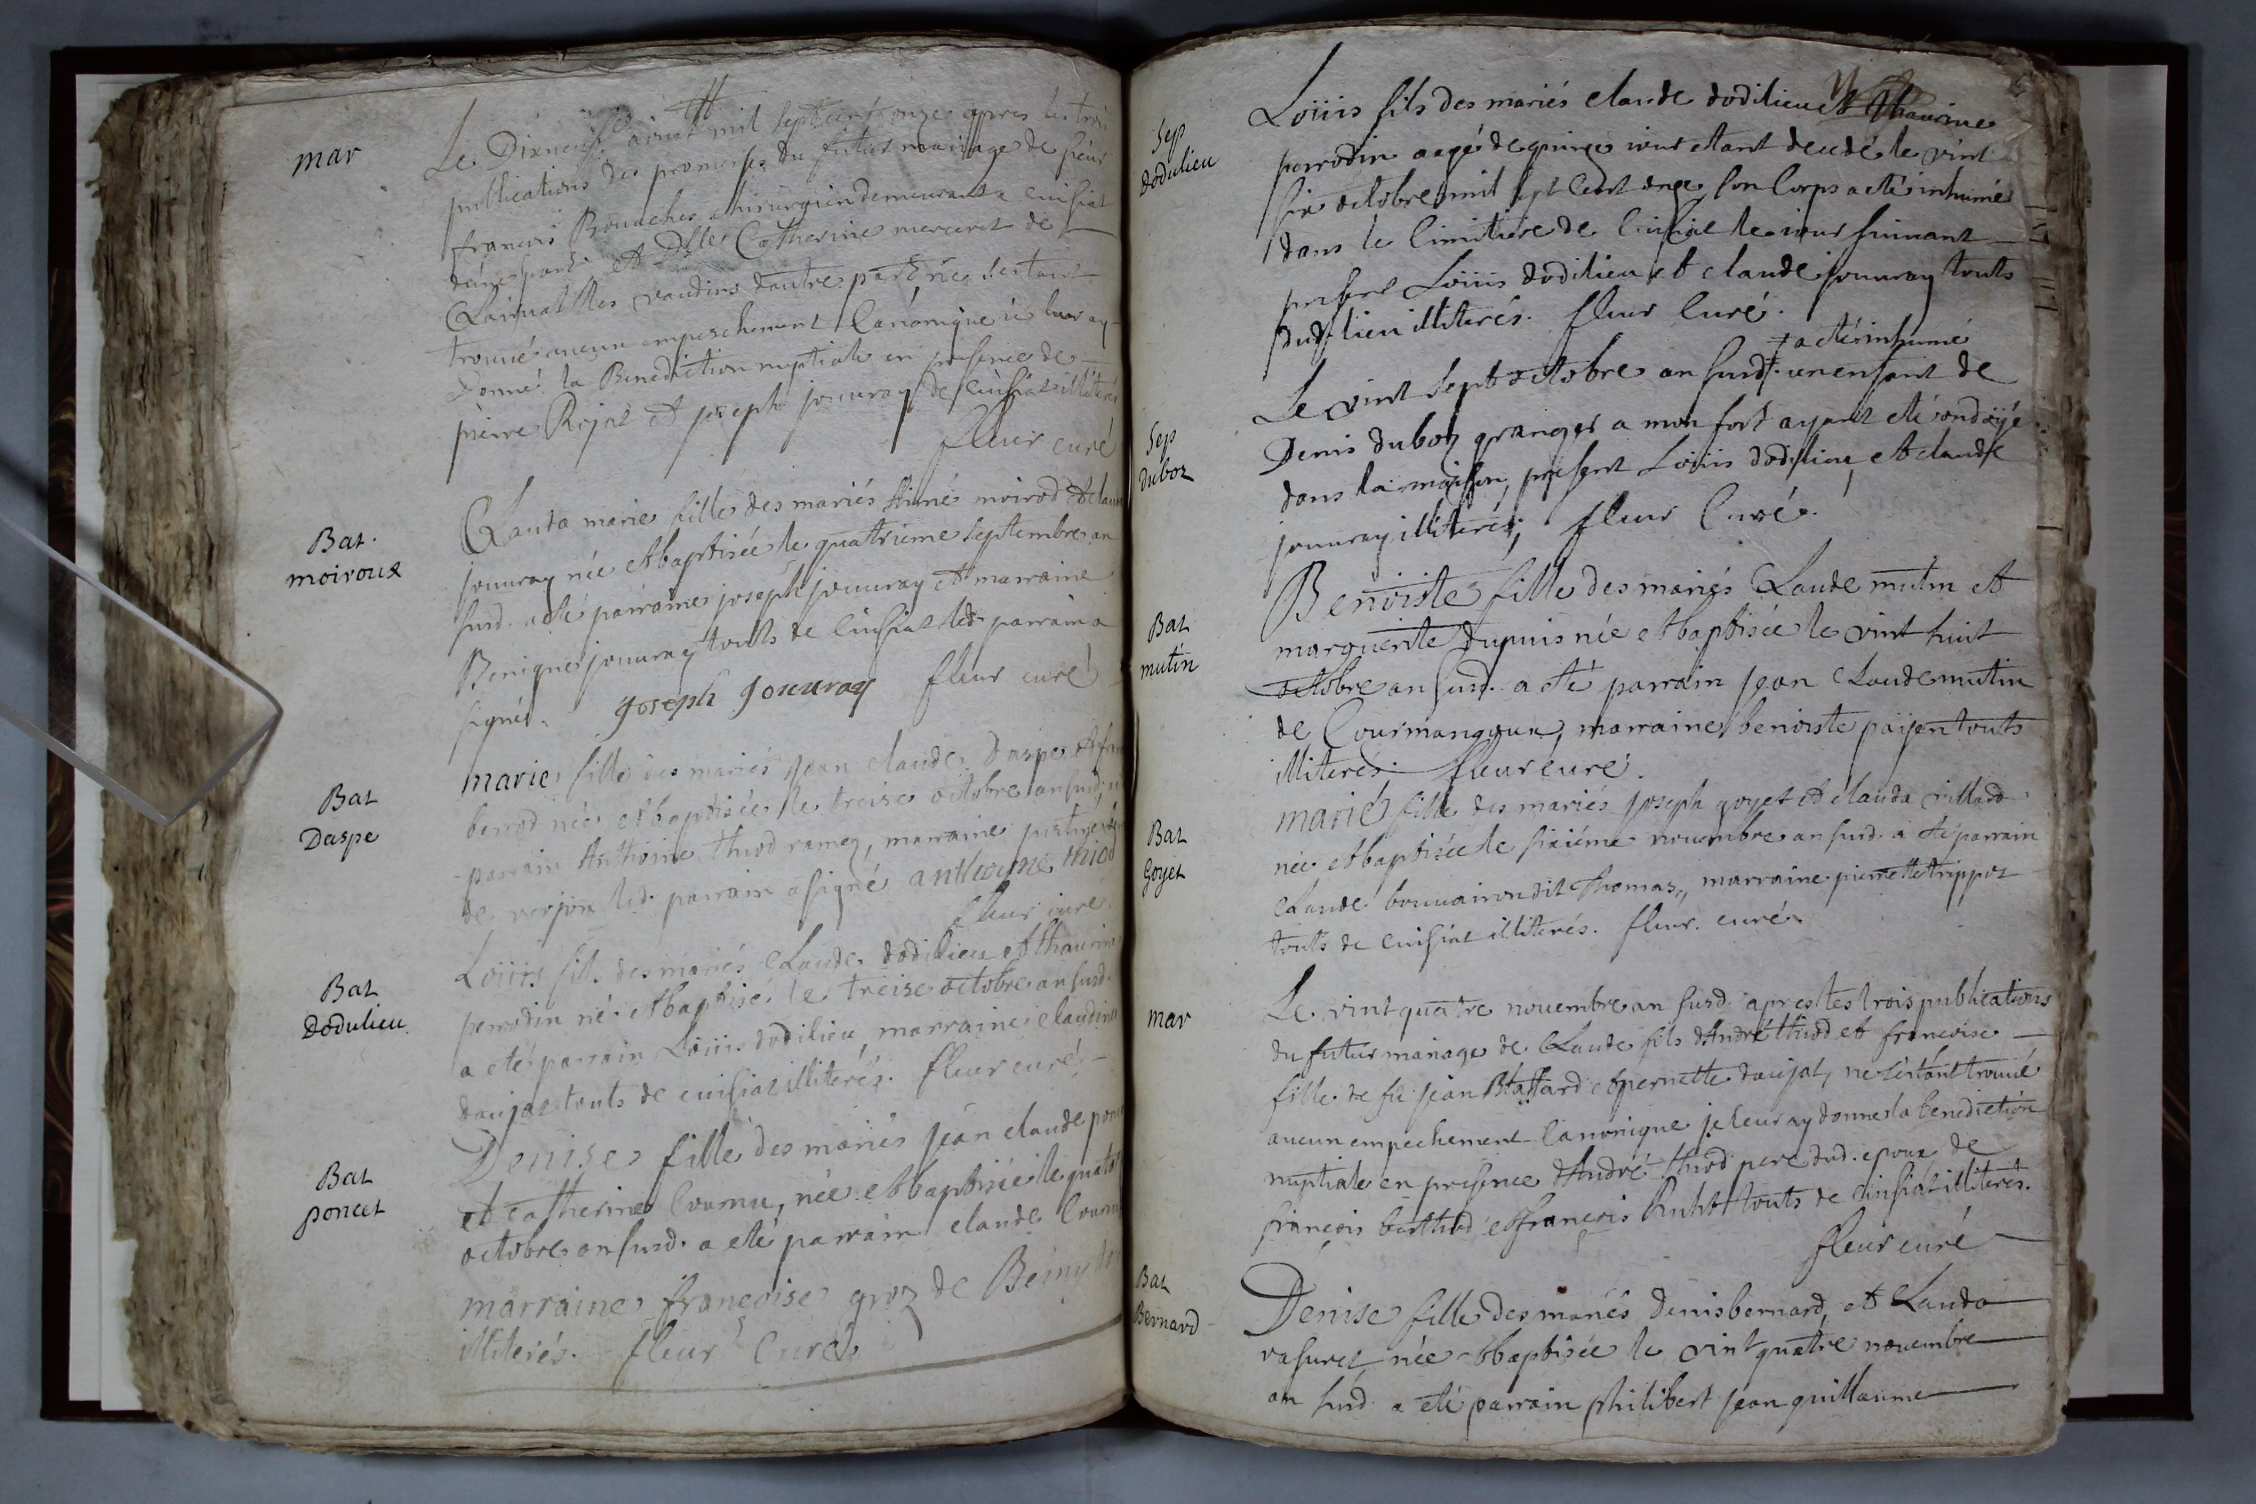 mar
Le Dixneuf aoust mil sept cent onze apres les trois
publications des promesses du futur mariage de sieur
francois Bouuches chirurgien demeurant a cuisiat
dune part et Dlle Catherine merceret de
dautre part ne sestant
trouué aucun empeschement Canonique ie leur ay
donné la Benediction nuptiale en presence de
pierre Rojat et joseph jouuray de cuisiat illiterés
fleur curé
Bat.
moiroux
Clauda marie fille des mariés Aimé moirod et claud
jouuray née et baptisée le quatrieme septembre an
susd. a eté parraine joseph jouuray et marraine
Benigne jouuray touts de cuisiat led. parrain a
signé. joseph jouuray fleur curé
Bat
Daspe
marie fille des mariés jean claude Daspe et fran
berrod née et baptisée le treise octobre an susd.
parrain Anthoine thiod ramez, marraine
de verjon led. parrain a signé anthoyne thiod
fleur curé
Bat
Dodulieu
Loüis fils des mariés Claude dodilieu et thaurine
perrodin né et baptisé le treise octobre an susd.
a eté parrain Loüis dodilieu, marraine claudine
daujat touts de cuisiat illiterés. fleur curé.
Bat
poncet
Denise fille des mariés jean claude ponc
et catherine Cournu, née et baptisée le quator
octobre an susd. a eté parrain claude Cournu
marraine francoise groz de Beiny
illiterés. fleur Curé
Sep
dodulieu
Loüis fils des mariés claude dodilieu et thaurine
perrodin aagé de quinze iour etant decedé le vint
six octobre mil sept Cent onze, son Corps a eté inhumé
dans le Cimitiere de Cuisiat le iour suiuant
present Loüis dodilieu et claude jouuray touts
dud. lieu illiterés. fleur Curé.
+ a eté inhumé
Sep
duboz
Le vint sept octobre an susd. + un enfant de
Denis duboz granger a mon fort ayant eté ondoÿé
dans la maison, present Loüis dodilieu, et claude
jouuray illiterés, fleur Curé.
Bat
mutin
Benoiste fille des mariés Claude mutin et
marguerite Dupuis née et baptisée le vint huit
octobre an susd. a eté parrain jean Claude mutin
de Courmangoux, marraine benoiste paijen touts
illiterés. fleur curé.
Bat
Goyet
marie fille des mariés joseph goyet et clauda villard
née et baptisée le sixiéme nouembre an susd. a eté parrain
Claude bouuairon dit Thomas, marraine pierrette trippoz
touts de cuisiat illiterés. fleur. curé.
mar
Le vint quatre nouembre an susd. apres les trois publications
du futur mariage de Claude fils d'André thiod et francoise
fille de fü jean Blattard et pernette daujat, ne s'estant trouué
aucun empechement Canonique je leur ay donné la benediction
nuptiale en presence d'André thiod pere dud. epoux de
françois berthod et françois Ruht touts de Cuisiat illiterés.
fleur curé
Bat
Bernard
Denise fille des mariés Denis bernard, et Clauda
vasurez née et baptisée le vint quatre nouembre
an susd. a eté parrain philibert jean guillaume